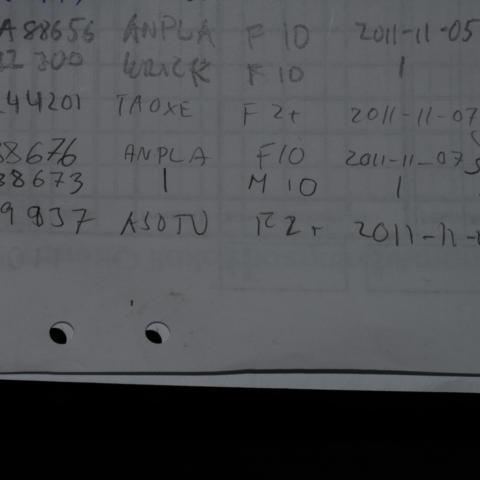 A88656 ANPLA F 10 2011-11-05
22300 F 10 |
44201 TAOXE F 2+ 2011-11-07
38676 ANPLA F10 2011-11-07
38673 | M 10 |
9837 ASOTU F 2+ 2011-11-